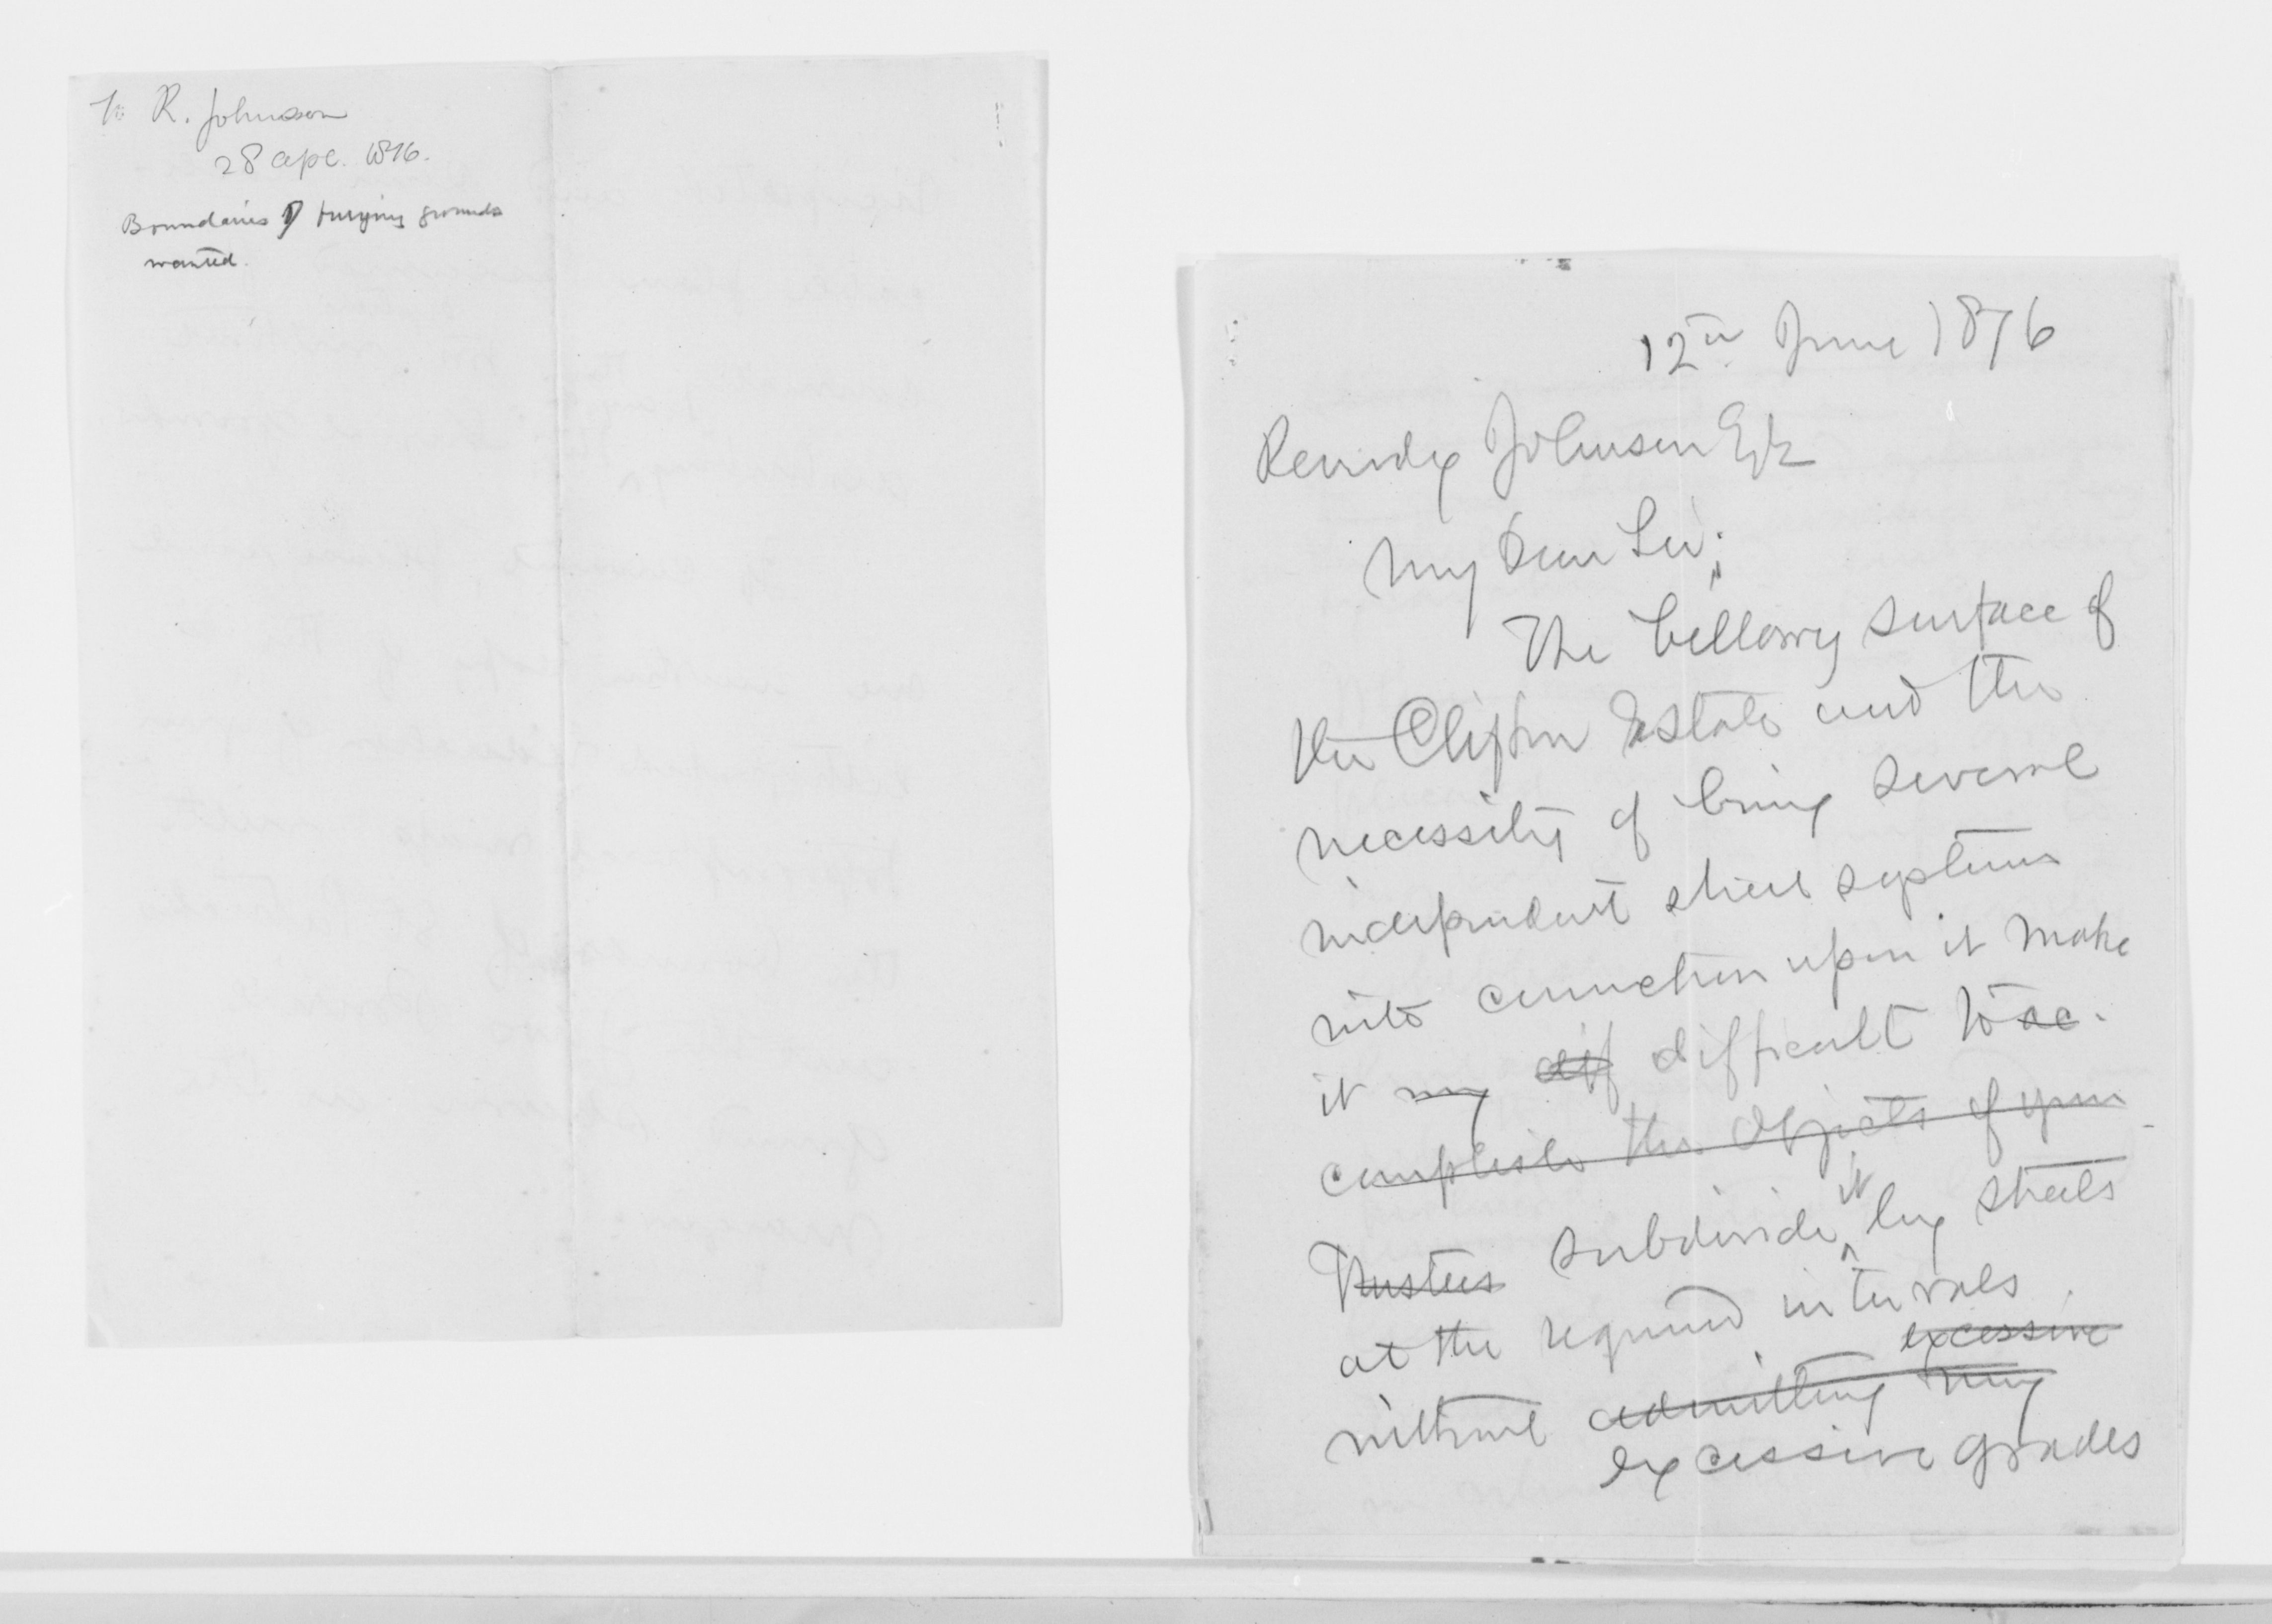 To R. Johnson
28 Apl. 1876.
Boundaries of burying grounds
wanted.
12th June 1876
Reverdy Johnson Esq
My Dear Sir;
The billowy surface of
the Clifton Estate and the
necessity of bring several
independent street systems
into connection upon it make
it my dif difficult to ac-
complish the objects of your
Trustees subdivide it by streets
at the required intervals
excessive
without admitting any
excessive grades